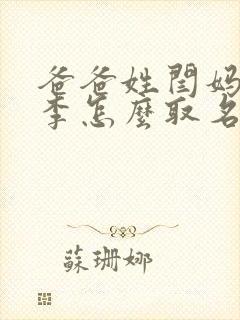 爸爸姓閆妈
李怎麼取名
蘇珊娜